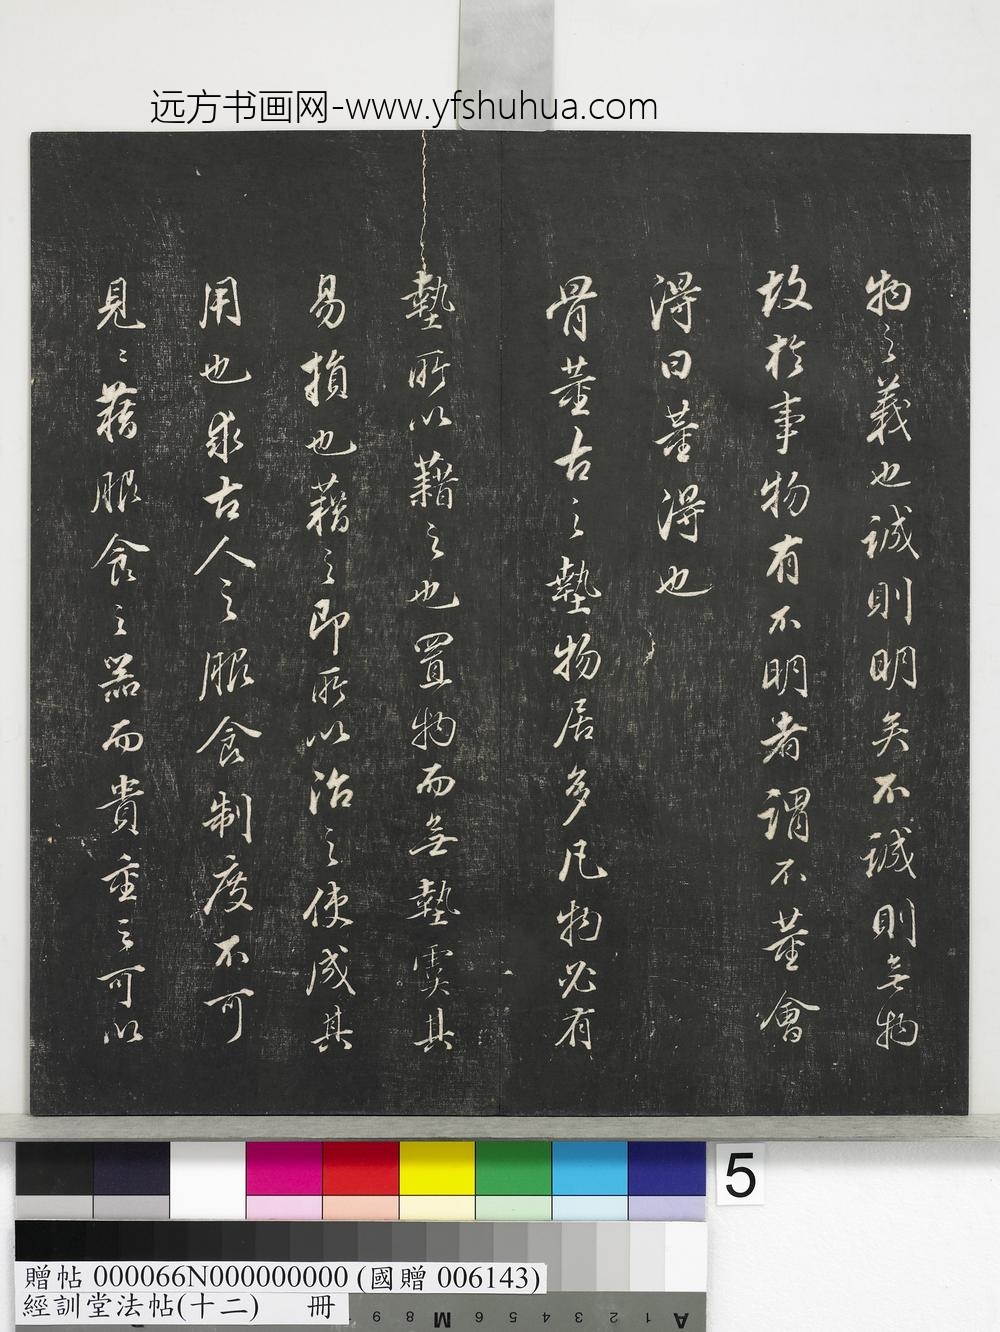 远方书画网-www.yfshuhua.com
物之義也誠則明矣不誠則無物
故於事物有不明者謂不董會
得曰董得也
骨董古之墊物居多凡物必有
墊所以藉之也置物而無墊虞其
易損也藉之即所以治之使成其
用也求古人之服食制度不可
見見藉服食之器而貴重之可以
5
贈帖 000066N000000000 (國贈 006143)
經訓堂法帖(十二) 冊
A 1 2 3 4 5 6 M 8 9